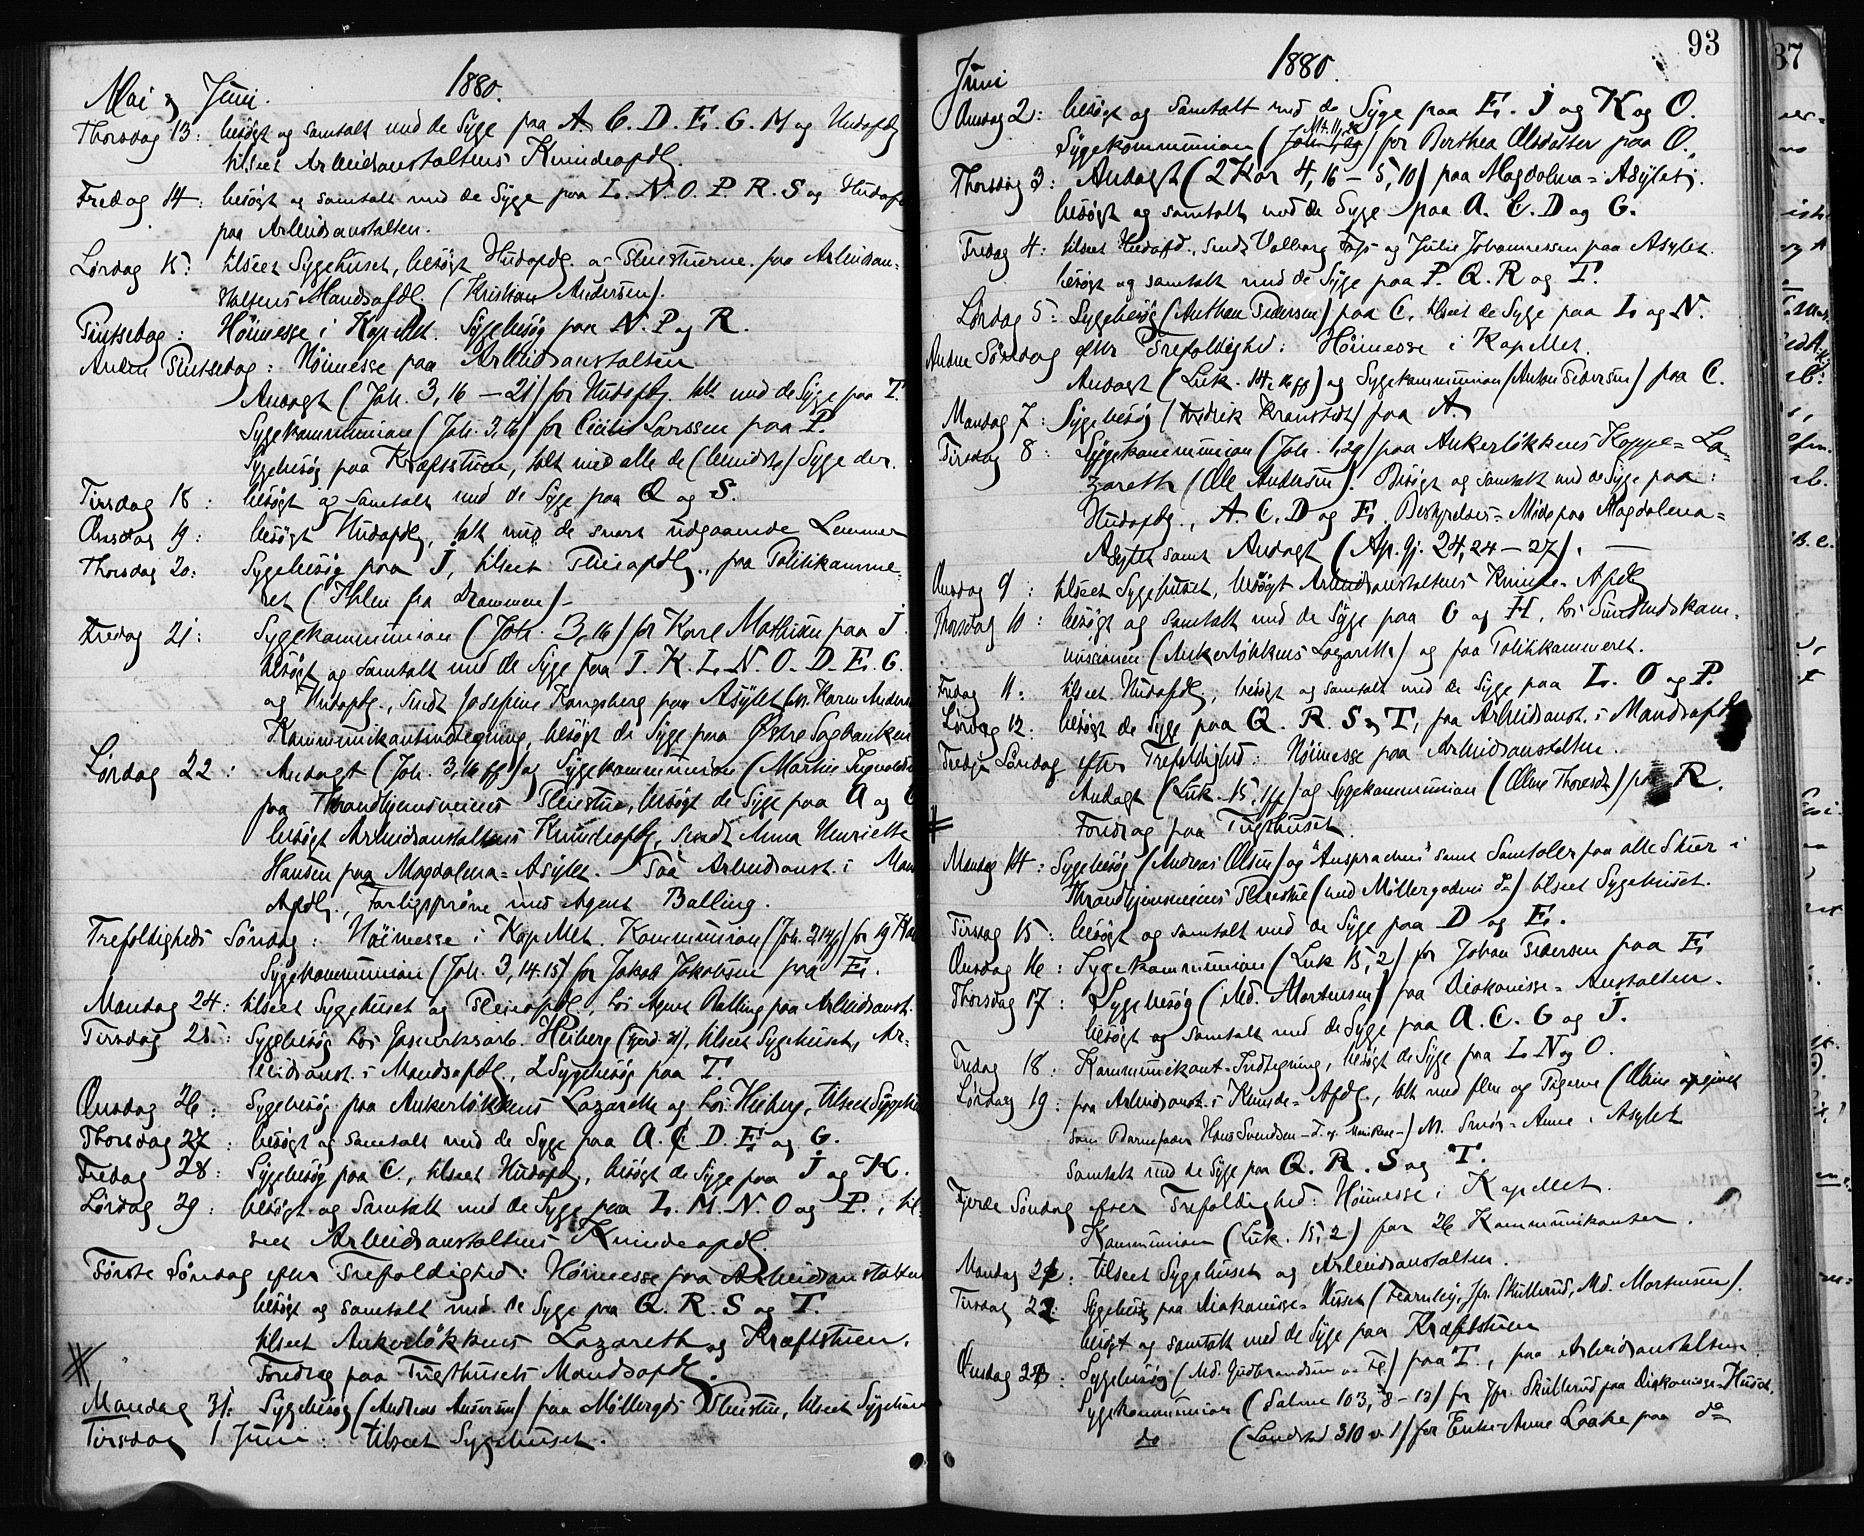 1880.
Mai & Juni.
Thorsdag 13: besøgt og samtalt med de Syge paa A. C. D. E. G. M og Hudafdlg
tilseet Arbeidsanstaltens Kvindeafdlg.
Fredag 14: besøgt og samtalt med de Syge paa L. N. O. P. R. S og Hudafd
paa Arbeidsanstalten.
Lørdag 15: tilseet Sygehuset, besøgt Hudafdlg. og Pleiestuerne paa Arbeidsan=
staltens Mandsafdlg. (Kristian Andersen).
Pintsedag: Høimesse i Kapellet. Sygebesøg paa N. P og R.
Anden Pintsedag: Høimesse paa Arbeidsanstalten
Andagt (Joh. 3, 16 — 21) for Hudafdlg. talt med de Syge paa T.
Sygekommunion (Joh. 3,16) for Cicilie Larssen paa P.
Sygebesøg paa Kræftstuen, talt med alle de Syge der.
Tirsdag 18: besøgt og samtalt med de Syge paa Q og S.
Onsdag 19: besøgt Hudafdlg, talt med de snart udgaaende Lemmer
Thorsdag 20: Sygebesøg paa J, tilseet Pleieafdlg., paa Politikamme=
ret (Thlen fra Drammen) –
Fredag 21: Sygekommunion (Joh. 3,16) for Karl Mathisen paa J.
besøgt og samtalt med de Syge paa I. K. L. N. O. D. E. G.
og Hudafdlg., sendt Josefine Kongsberg paa Asylet Karen Anders
Kommunikantindtegning, besøgt de Syge paa Østre Sagbanken
Lørdag 22: Andagt (Joh. 3,16 ff) og Sygekommunion (Martin
paa Throndhjemsveiens Pleiestue, besøgt de Syge paa A og C
besøgt Arbeidsanstaltens Kvindeafdlg, sendt Anna Henriette
Hansen paa Magdalena=Asylet. Paa Arbeidsanst.s Man
Afdlg., med Agent Balling.
Trefoldigheds Søndag: Høimesse i Kapellet. Kommunion for 19
Sygekommunion (Joh. 3,14.15) for Jakob Jakobsen paa E.
Mandag 24: tilseet Sygehuset og Pleieafdlg., hos Agent Balling paa Arbeidsanst.
Tirsdag 25: Sygebesøg hos Heiberg, tilseet Sygehuset, Ar=
beidsanst.s Mandsafdlg., 2 Sygebesøg paa T.
Onsdag 26: Sygebesøg paa Ankerløkkens Lazareth og hos Heiberg, tilseet Sygehu
Thorsdag 27: besøgt og samtalt med de Syge paa A. C. D. E. og G.
Fredag 28: Sygebesøg paa C., tilseet Hudafdlg, besøgt de Syge paa J og K.
Lørdag 29: besøgt og Samtalt med de Syge paa L. M. N. O og P., til=
seet Arbeidsanstaltens Kvindeafdlg.
Første Søndag efter Trefoldighed: Høimesse paa Arbeidsanstalten
besøgt og samtalt med de Syge paa Q. R. S og T.
tilseet Ankerløkkens Lazareth og Kræftstuen.
Foredrag paa Tugthusets Mandsafdlg.
Mandag 31: Sygebesøg (Andreas Andersen) paa Møllergds Pleiestue, tilseet Sygehuset
Tirsdag 1 Juni: tilseet Sygehuset.
93
1880.
Juni
Onsdag 2: besøgt og samtalt med de Syge paa E. J og K og O.
Sygekommunion (Mt. 11,28) for Berthea Olsdatter paa O.
Thorsdag 3: Andagt (2 Kor 4,16 — 5,10) paa Magdalena=Asylet;
besøgt og samtalt med de Syge paa A. C. D og G.
Fredag 4: tilseet Hudafd., sendt Valborg og Julie Johannessen paa Asylet.
besøgt og samtalt med de Syge paa P. Q. R og T.
Lørdag 5: Sygebesøg (Anthon Pedersen) paa C, tilseet de Syge paa L og N.
Anden Søndag efter Trefoldighed: Høimesse i Kapellet.
Andagt (Luk. 14, 16 ff) og Sygekommunion (Anton Pedersen) paa C.
Mandag 7: Sygebesøg (Fredrik) paa A.
Tirsdag 8: Sygekommunion (Joh. 1,29) paa Ankerløkkens Koppe=La=
zareth (Ole Andersen). Besøgt og samtalt med de Syge paa:
Hudafdlg., A. C. D og E. Bestyrelses=Møde paa Magdalena=
Asylet samt Andagt (Ap. Gj. 24, 24 — 27). —
Onsdag 9: tilseet Sygehuset, besøgt Arbeidsanstaltens Kvinde=Afdlg
Thorsdag 10: besøgt og Samtalt med de Syge paa G og H, hos Sundhedskom=
missionen (Ankerløkkens Lazareth) og paa Politikammeret.
Fredag 11: tilseet Hudafdlg, besøgt og samtalt med de Syge paa L. O og P.
Lørdag 12: besøgt de Syge paa Q. R. S & T, paa Arbeidsanst.s Mandsafdlg
Tredje Søndag efter Trefoldighed: Høimesse paa Arbeidsanstalten.
Andagt (Luk. 15, 1 ff) og Sygekommunion (Oline Thoresdt) paa R.
Foredrag paa Tugthuset.
Mandag 14: Sygebesøg (Andreas Olsen) og "Ansprachen" samt Samtaler paa alle Stuer i
Throndhjemsveiens Pleiestue (med Møllergadens do) tilseet Sygehuset.
Tirsdag 15: besøgt og samtalt med de Syge paa D og E.
Onsdag 16: Sygekommunion (Luk 15,2) for Johan Pedersen paa E
Thorsdag 17: Sygebesøg (Md. Mortensen) paa Diakonisse=Anstalten.
besøgt og samtalt med de Syge paa A. C. G og J.
Fredag 18: Kommunikant=Indtegning, besøgt de Syge paa L. N og O.
Lørdag 19: paa Arbeidsanst.s Kvinde=Afdlg., talt med flere af Pigerne (Oline opgivet
som Barnefader Hans Svendsen) M. Smør=Anne, Asylet
samtalt med de Syge paa Q. R. S og T.
Fjerde Søndag efter Trefoldighed: Høimesse i Kapellet.
Kommunion (Luk. 15,2) for 26 Kommunikanter.
Mandag 21: tilseet Sygehuset og Arbeidsanstalten.
Tirsdag 22: Sygebesøg paa Diakonisse=Huset (Fearnley, Jfr. Skullerud, Md. Mortensen).
besøgt og samtalt med de Syge paa Kræftstuen
Onsdag 23: Sygebesøg (Md. Gudbrandsen) paa T., paa Arbeidsanstalten.
Sygekommunion (Salme 103, 8 – 13) for Jfr. Skullerud paa Diakonisse=Huset.
do (Landstad 310 v. 1) for Enke Anne Laake paa do